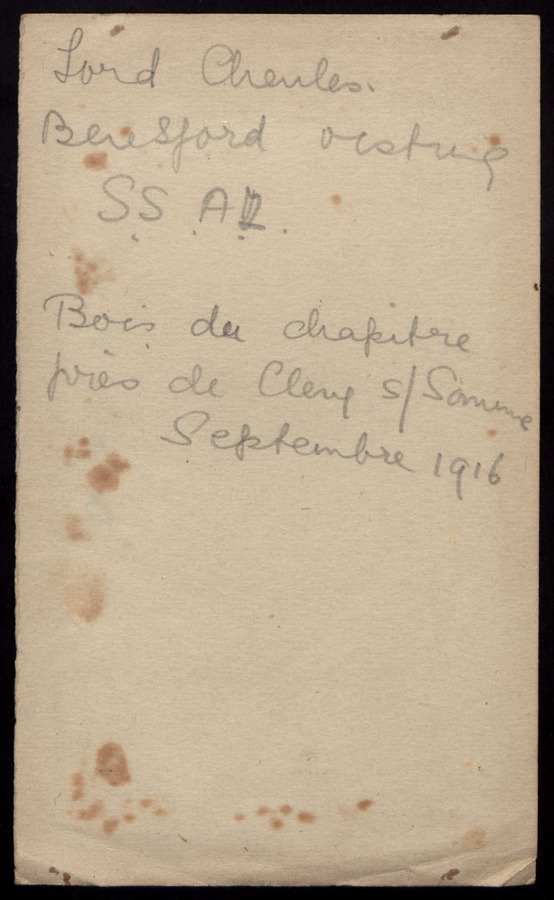 Lord Charles.
Beresford visiting
SS A
Bois du chapitre
près de Clery s/Somme
Septembre 1916